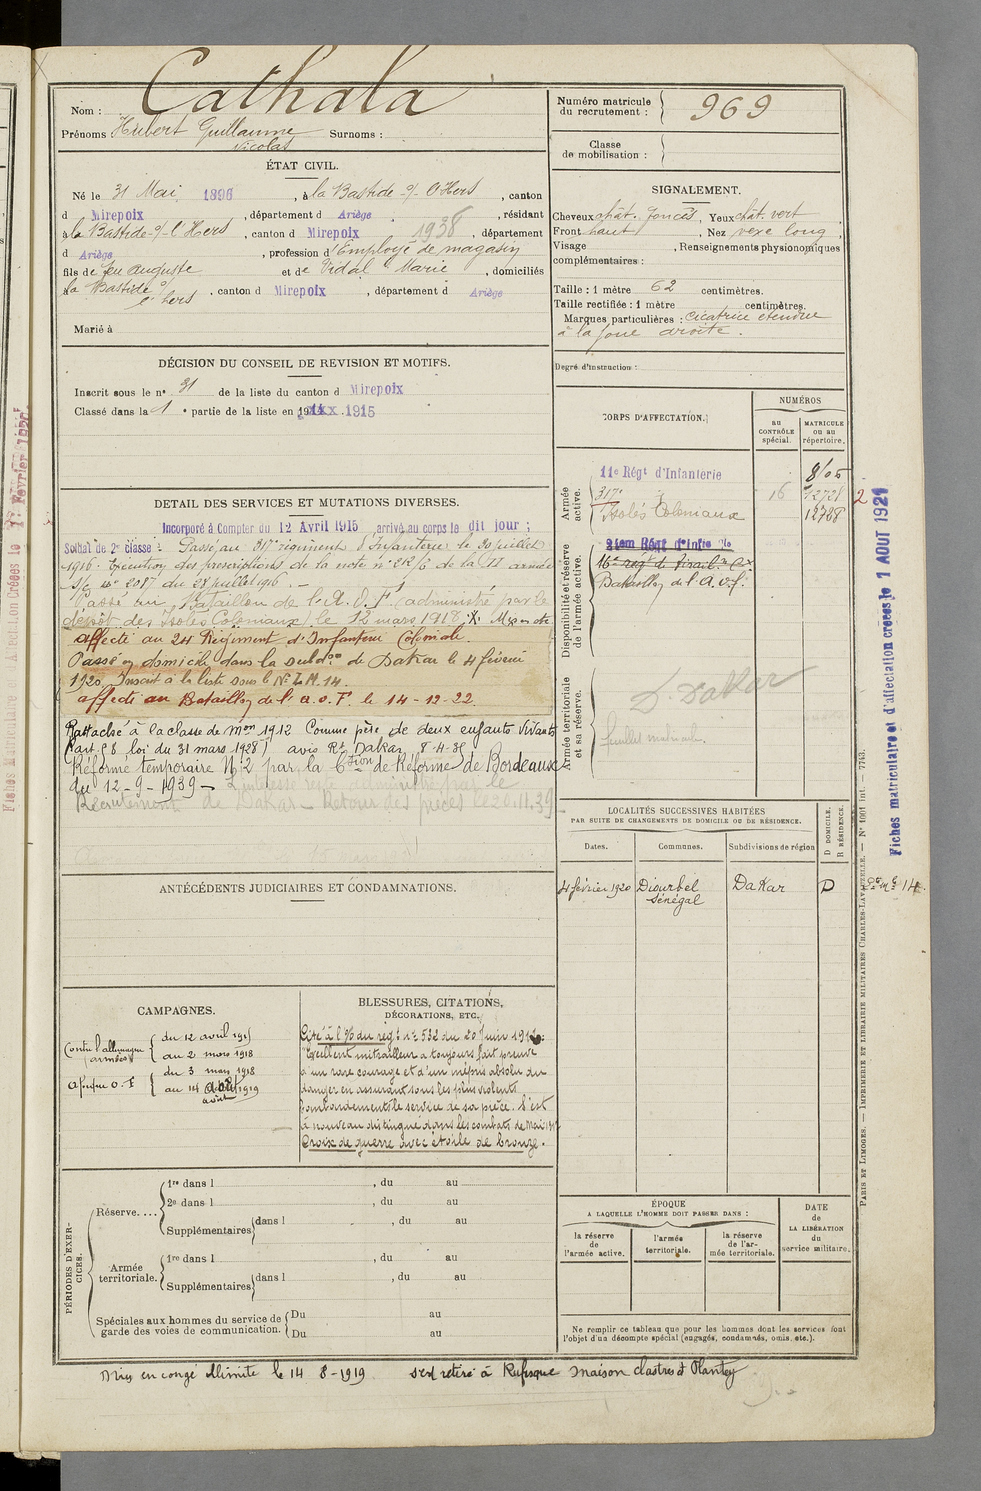 Nom : Cathala
Prénoms Hubert Guillaume Surnoms :
Nicolas
Numéro matricule du recrutement : 969
Classe de mobilisation :
ÉTAT CIVIL.
Né le 31 Mai 1896, à la Bastide s/ l'Hers, canton
d Mirepoix, département d Ariège, résidant
à la Bastide s/ l'Hers, canton d Mirepoix 1938, département
d Ariège, profession d'Employé de magasin
fils de feu Auguste et de Vidal Marie, domiciliés
à la Bastide s/ l'hers, canton d Mirepoix, département d Ariège
Marié à
SIGNALEMENT.
Cheveux chât. foncés, Yeux chât. vert
Front haut, Nez vexe long,
Visage , Renseignements physionomiques
complémentaires :
Taille : 1 mètre 62 centimètres.
Taille rectifiée : 1 mètre centimètres.
Marques particulières : Cicatrice étendue
à la joue droite.
Degré d'instruction :
DÉCISION DU CONSEIL DE REVISION ET MOTIFS.
Inscrit sous le n° 31 de la liste du canton d Mirepoix
Classé dans la 1e partie de la liste en 1915
CORPS D'AFFECTATION.
NUMÉROS
au CONTRÔLE spécial.
MATRICULE ou au répertoire.
Armée active.
11e Régt d'Infanterie
317e 16 12728 2
Isolés Coloniaux 12728
Disponibilité et réserve de l'armée active.
24em Régt d'Infie Cle
16e rég. de Tirail.
Bataillon de l'A.O.F.
Armée territoriale et sa réserve.
D. Dakar
feuillet matricule.
DETAIL DES SERVICES ET MUTATIONS DIVERSES.
Incorporé à Compter du 12 Avril 1915 arrivé au corps le dit jour ;
Soldat de 2e classe : Passé au 317e régiment d'Infanterie le 30 juillet
1916. Exécution des prescriptions de la note n° 212/6 de la VI armée
S/C n° 2087 du 28 juillet 1916.
Passé au Bataillon de l'A.O.F. (administré par le
dépôt des Isolés Coloniaux) le 12 mars 1918
affecté au 24 Régiment d'Infanterie Coloniale.
Passé en domicile dans la subdon de Dakar le 4 février
1920. Inscrit à la liste sous le N° Z.M.14.
affecté au Bataillon de l'A.O.F. le 14-12-22.
Rattaché à la classe de Mon 1912 Comme père de deux enfants vivants
(art 58 loi du 31 mars 1928) avis Rt Dakar 8-4-35
Réformé temporaire N°2 par la Ction de Réforme de Bordeaux
du 12-9-1939 - L'intéressé reste administré par le
Recrutement de Dakar - Retour des pièces le 20.11.39
LOCALITÉS SUCCESSIVES HABITÉES
PAR SUITE DE CHANGEMENTS DE DOMICILE OU DE RÉSIDENCE.
Dates. Communes. Subdivisions de région D DOMICILE. R RÉSIDENCE.
4 février 1920 Diourbel Sénégal Dakar D
ANTÉCÉDENTS JUDICIAIRES ET CONDAMNATIONS.
CAMPAGNES.
Contre l'allemagne armées
du 12 avril 1915
au 2 mars 1918
Afrique O. F
du 3 mars 1918
au 14 août 1919
août
BLESSURES, CITATIONS,
DÉCORATIONS, ETC.
Cité à l'O/ du rég. n° 532 du 20 Juin 191
"Excellent mitrailleur a toujours fait preuve
d'un rare courage et d'un mépris absolu du
danger en assurant sous les plus violents
bombardements le service de sa pièce. S'est
à nouveau distingué dans les combats de Mai 1917
Croix de guerre avec étoile de bronze.
PÉRIODES D'EXERCICES.
Réserve....
1re dans l , du au
2e dans l , du au
Supplémentaires dans l , du au
Armée territoriale.
1re dans l , du au
Supplémentaires dans l , du au
Spéciales aux hommes du service de garde des voies de communication.
Du au
Du au
ÉPOQUE
A LAQUELLE L'HOMME DOIT PASSER DANS :
la réserve de l'armée active.
l'armée territoriale.
la réserve de l'armée territoriale.
DATE de LA LIBÉRATION du service militaire.
Ne remplir ce tableau que pour les hommes dont les services font
l'objet d'un décompte spécial (engagés, condamnés, omis, etc.).
Mis en congé illimité le 14-8-1919 s'est retiré à Rufisque maison Clastres et Plantey
Fiches matriculaire et d'affectation créées le 1 AOUT 1921
PARIS ET LIMOGES. — IMPRIMERIE ET LIBRAIRIE MILITAIRES CHARLES-LAVAUZELLE. — N° 1001 int. — 7743.